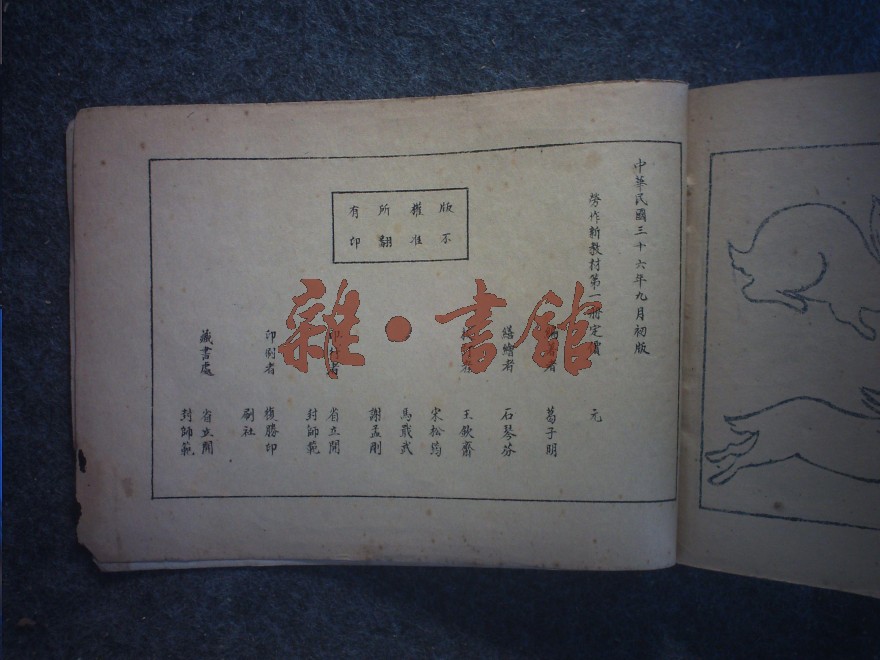 中華民國三十六年九月初版
勞作新教材第一冊定價 元
葛子明
繕繪者 石琴芬
王欽齋
宋松筠
馬戰武
謝孟剛
省立開
封師範
印刷者 復勝印
刷社
藏書處 省立開
封師範
版權所有
不准翻印
雜·書館